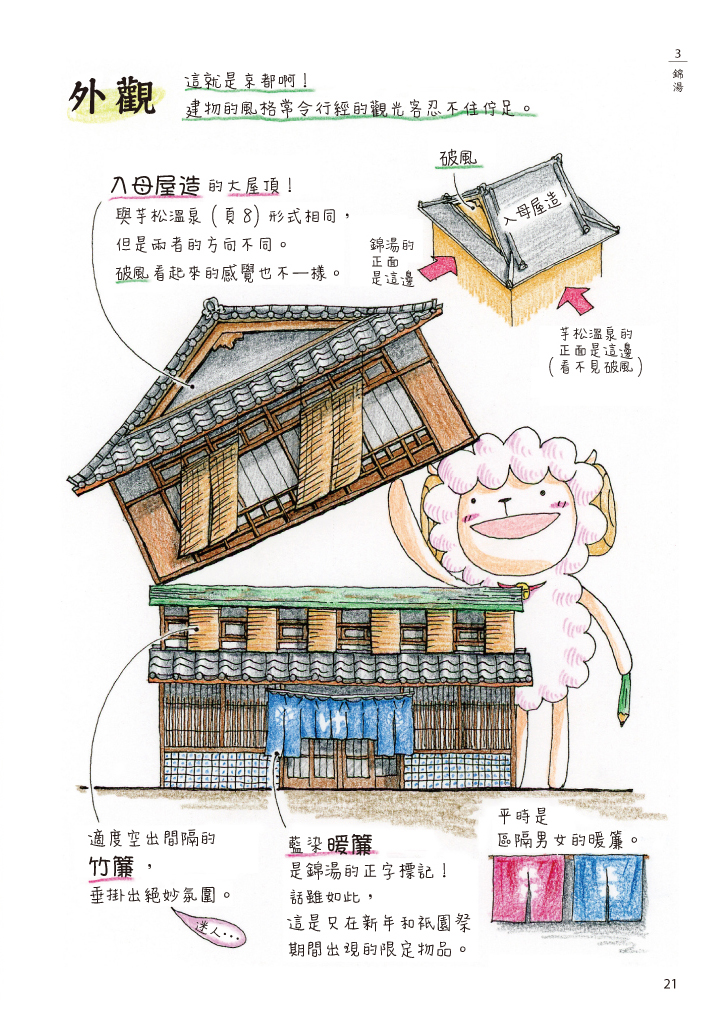 3
錦湯
外觀
這就是京都啊！
建物的風格常令行經的觀光客忍不住佇足。
破風
入母屋造的大屋頂！
與芋松溫泉（頁8）形式相同，
但是兩者的方向不同。
破風看起來的感覺也不一樣。
入母屋造
錦湯的
正面
是這邊
芋松溫泉的
正面是這邊
（看不見破風）
適度空出間隔的
竹簾，
垂掛出絕妙氛圍。
迷人…
藍染暖簾
是錦湯的正字標記！
話雖如此，
這是只在新年和祇園祭
期間出現的限定物品。
平時是
區隔男女的暖簾。
21